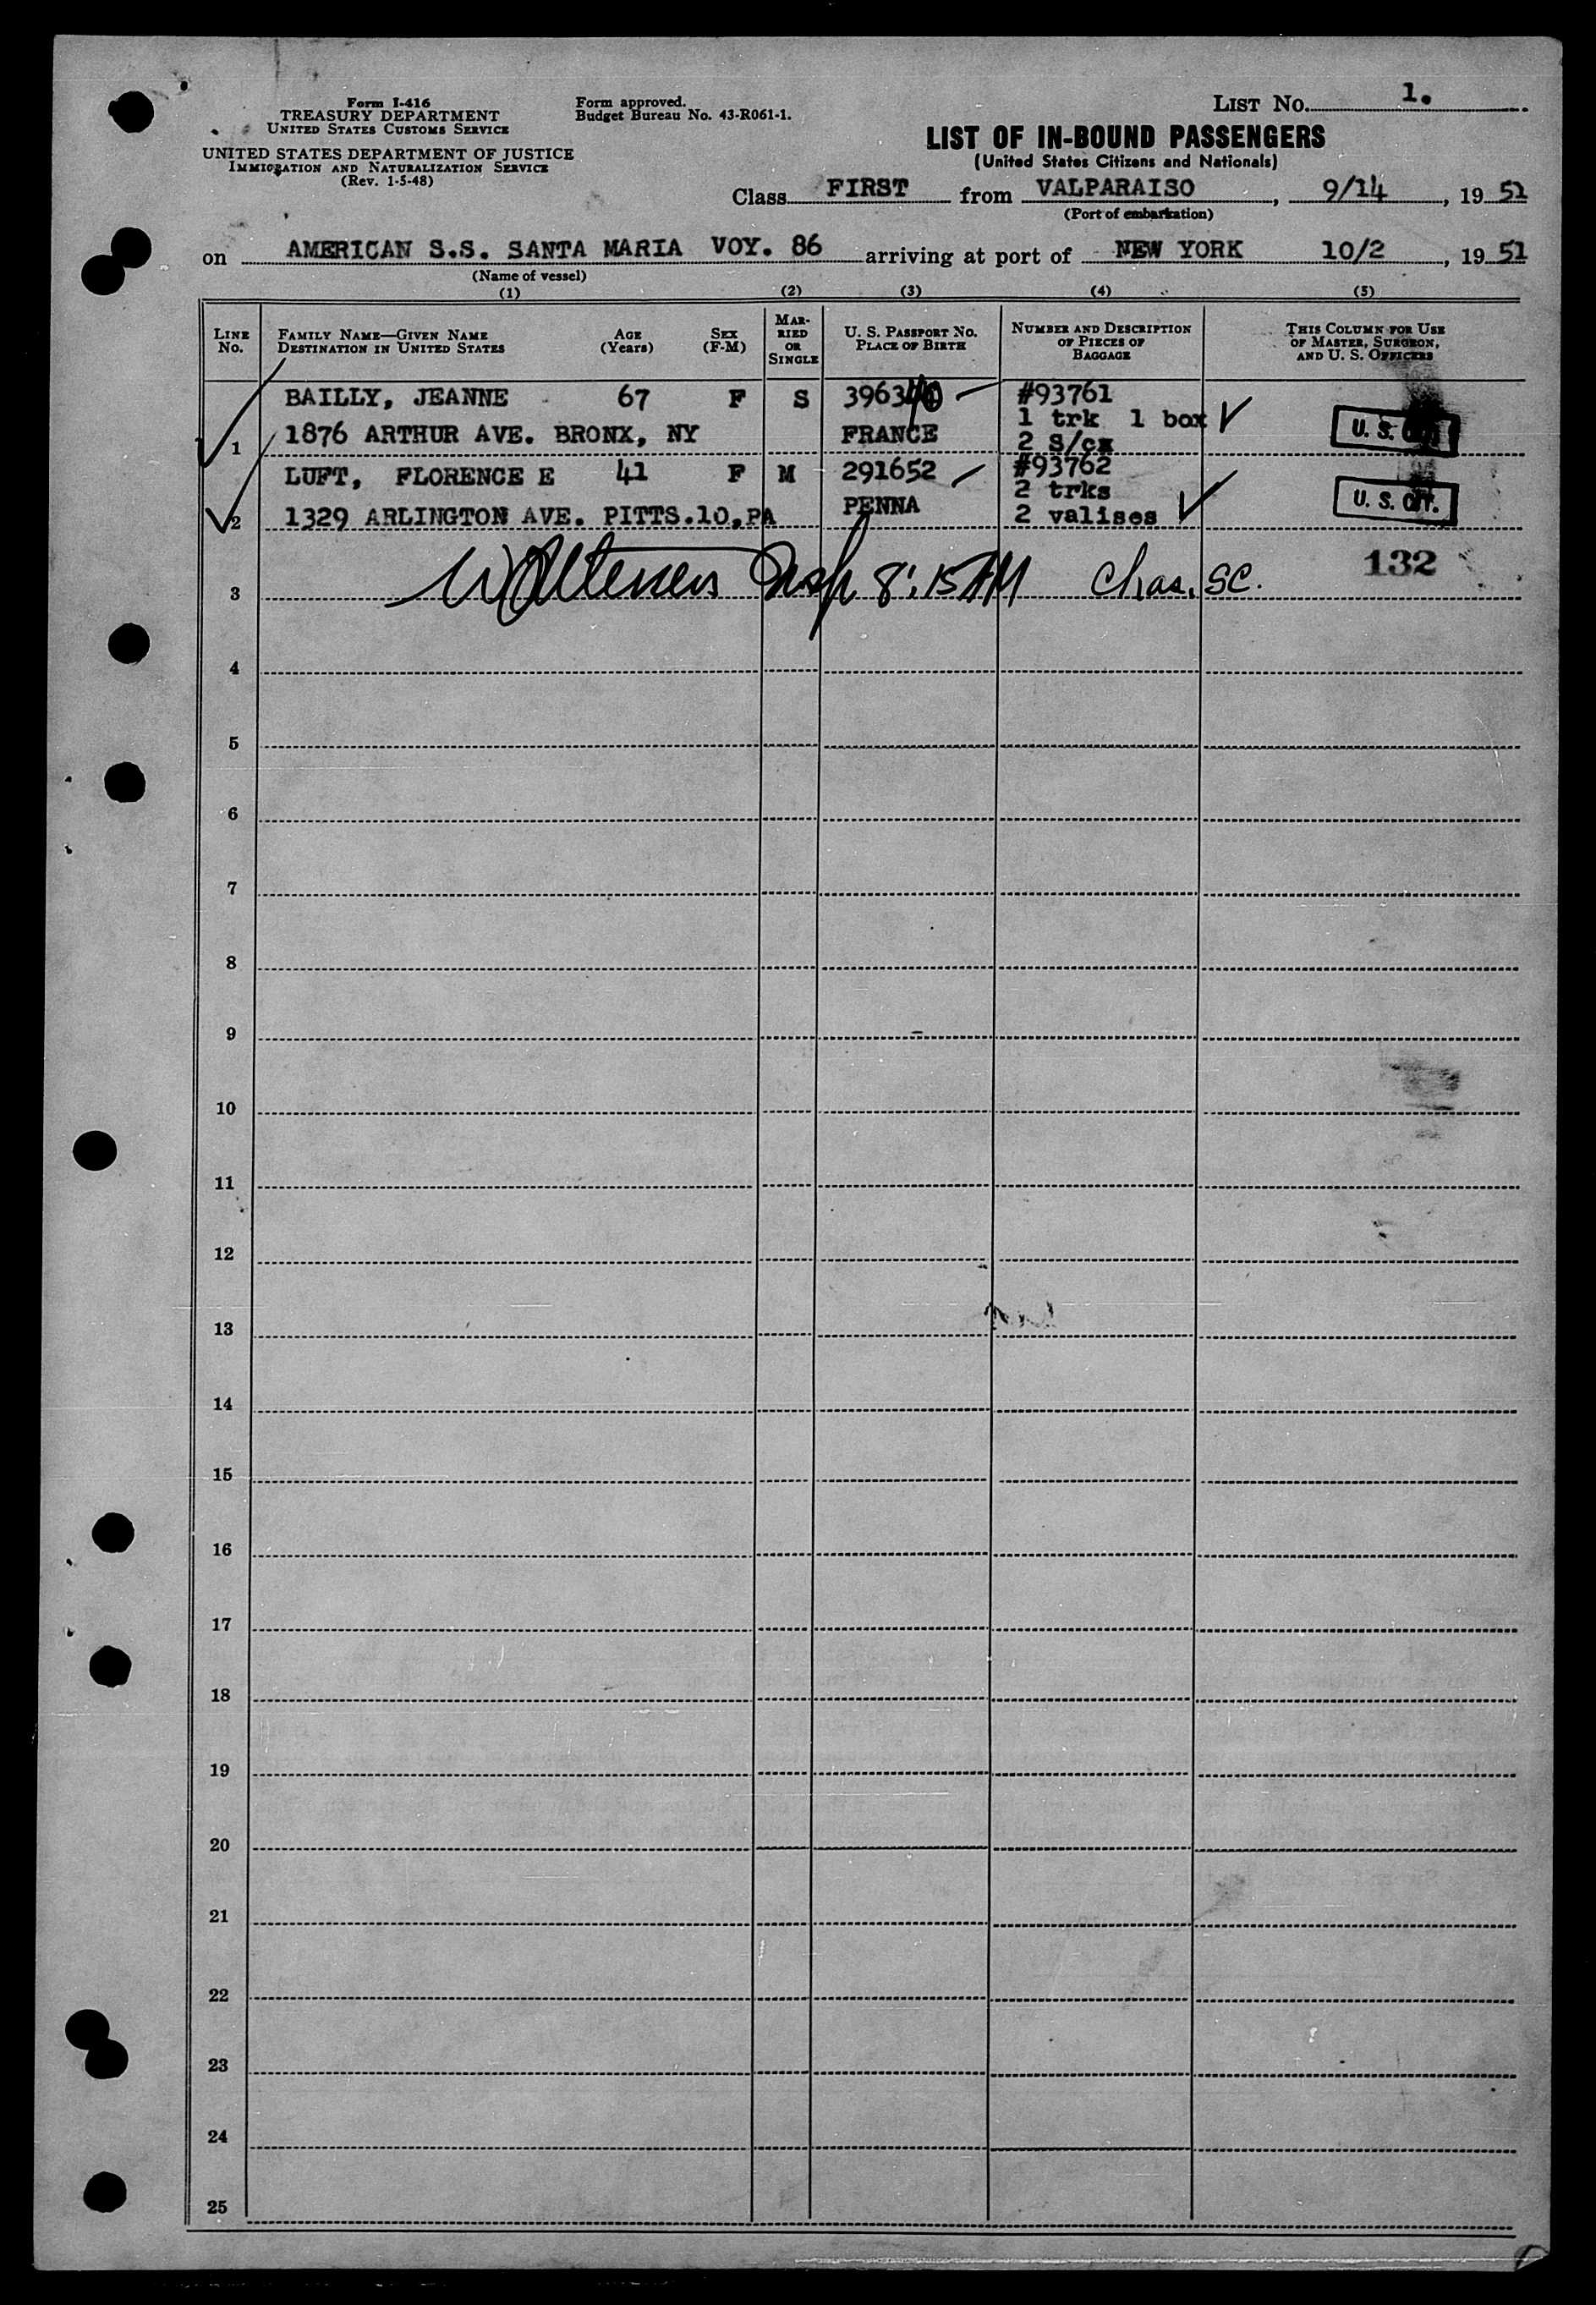 Form I-416
TREASURY DEPARTMENT
UNITED STATES CUSTOMS SERVICE
UNITED STATES DEPARTMENT OF JUSTICE
IMMIGRATION AND NATURALIZATION SERVICE
(Rev. 1-5-48)
Form approved.
Budget Bureau No. 43-R061-1.
LIST NO. 1.
LIST OF IN-BOUND PASSENGERS
(United States Citizens and Nationals)
Class FIRST from VALPARAISO, 9/14, 1951
(Port of embarkation)
on AMERICAN S.S. SANTA MARIA VOY. 86 arriving at port of NEW YORK 10/2, 1951
(Name of vessel)
(1) (2) (3) (4) (5)
LINE NO.
FAMILY NAME—GIVEN NAME
DESTINATION IN UNITED STATES
AGE
(Years)
SEX
(F-M)
MAR-
RIED
OR
SINGLE
U. S. PASSPORT NO.
PLACE OF BIRTH
NUMBER AND DESCRIPTION
OF PIECES OF
BAGGAGE
THIS COLUMN FOR USE
OF MASTER, SURGEON,
AND U. S. OFFICERS
BAILLY, JEANNE 67 F S 396340 #93761
1 trk 1 box
1 1876 ARTHUR AVE. BRONX, NY FRANCE U. S. CIT.
2 S/cs
LUFT, FLORENCE E 41 F M 291652 #93762
2 trks
2 1329 ARLINGTON AVE. PITTS.10,PA PENNA 2 valises U. S. CIT.
132
3 Insp 8:15 AM Chas, SC.
4
5
6
7
8
9
10
11
12
13
14
15
16
17
18
19
20
21
22
23
24
25